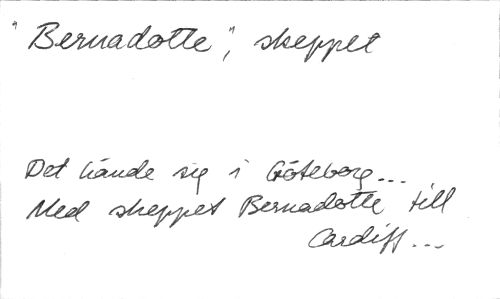 "Bernadotte", skeppet
Det hände sig i Göteborg...
Med skeppet Bernadotte till
Cardiff...